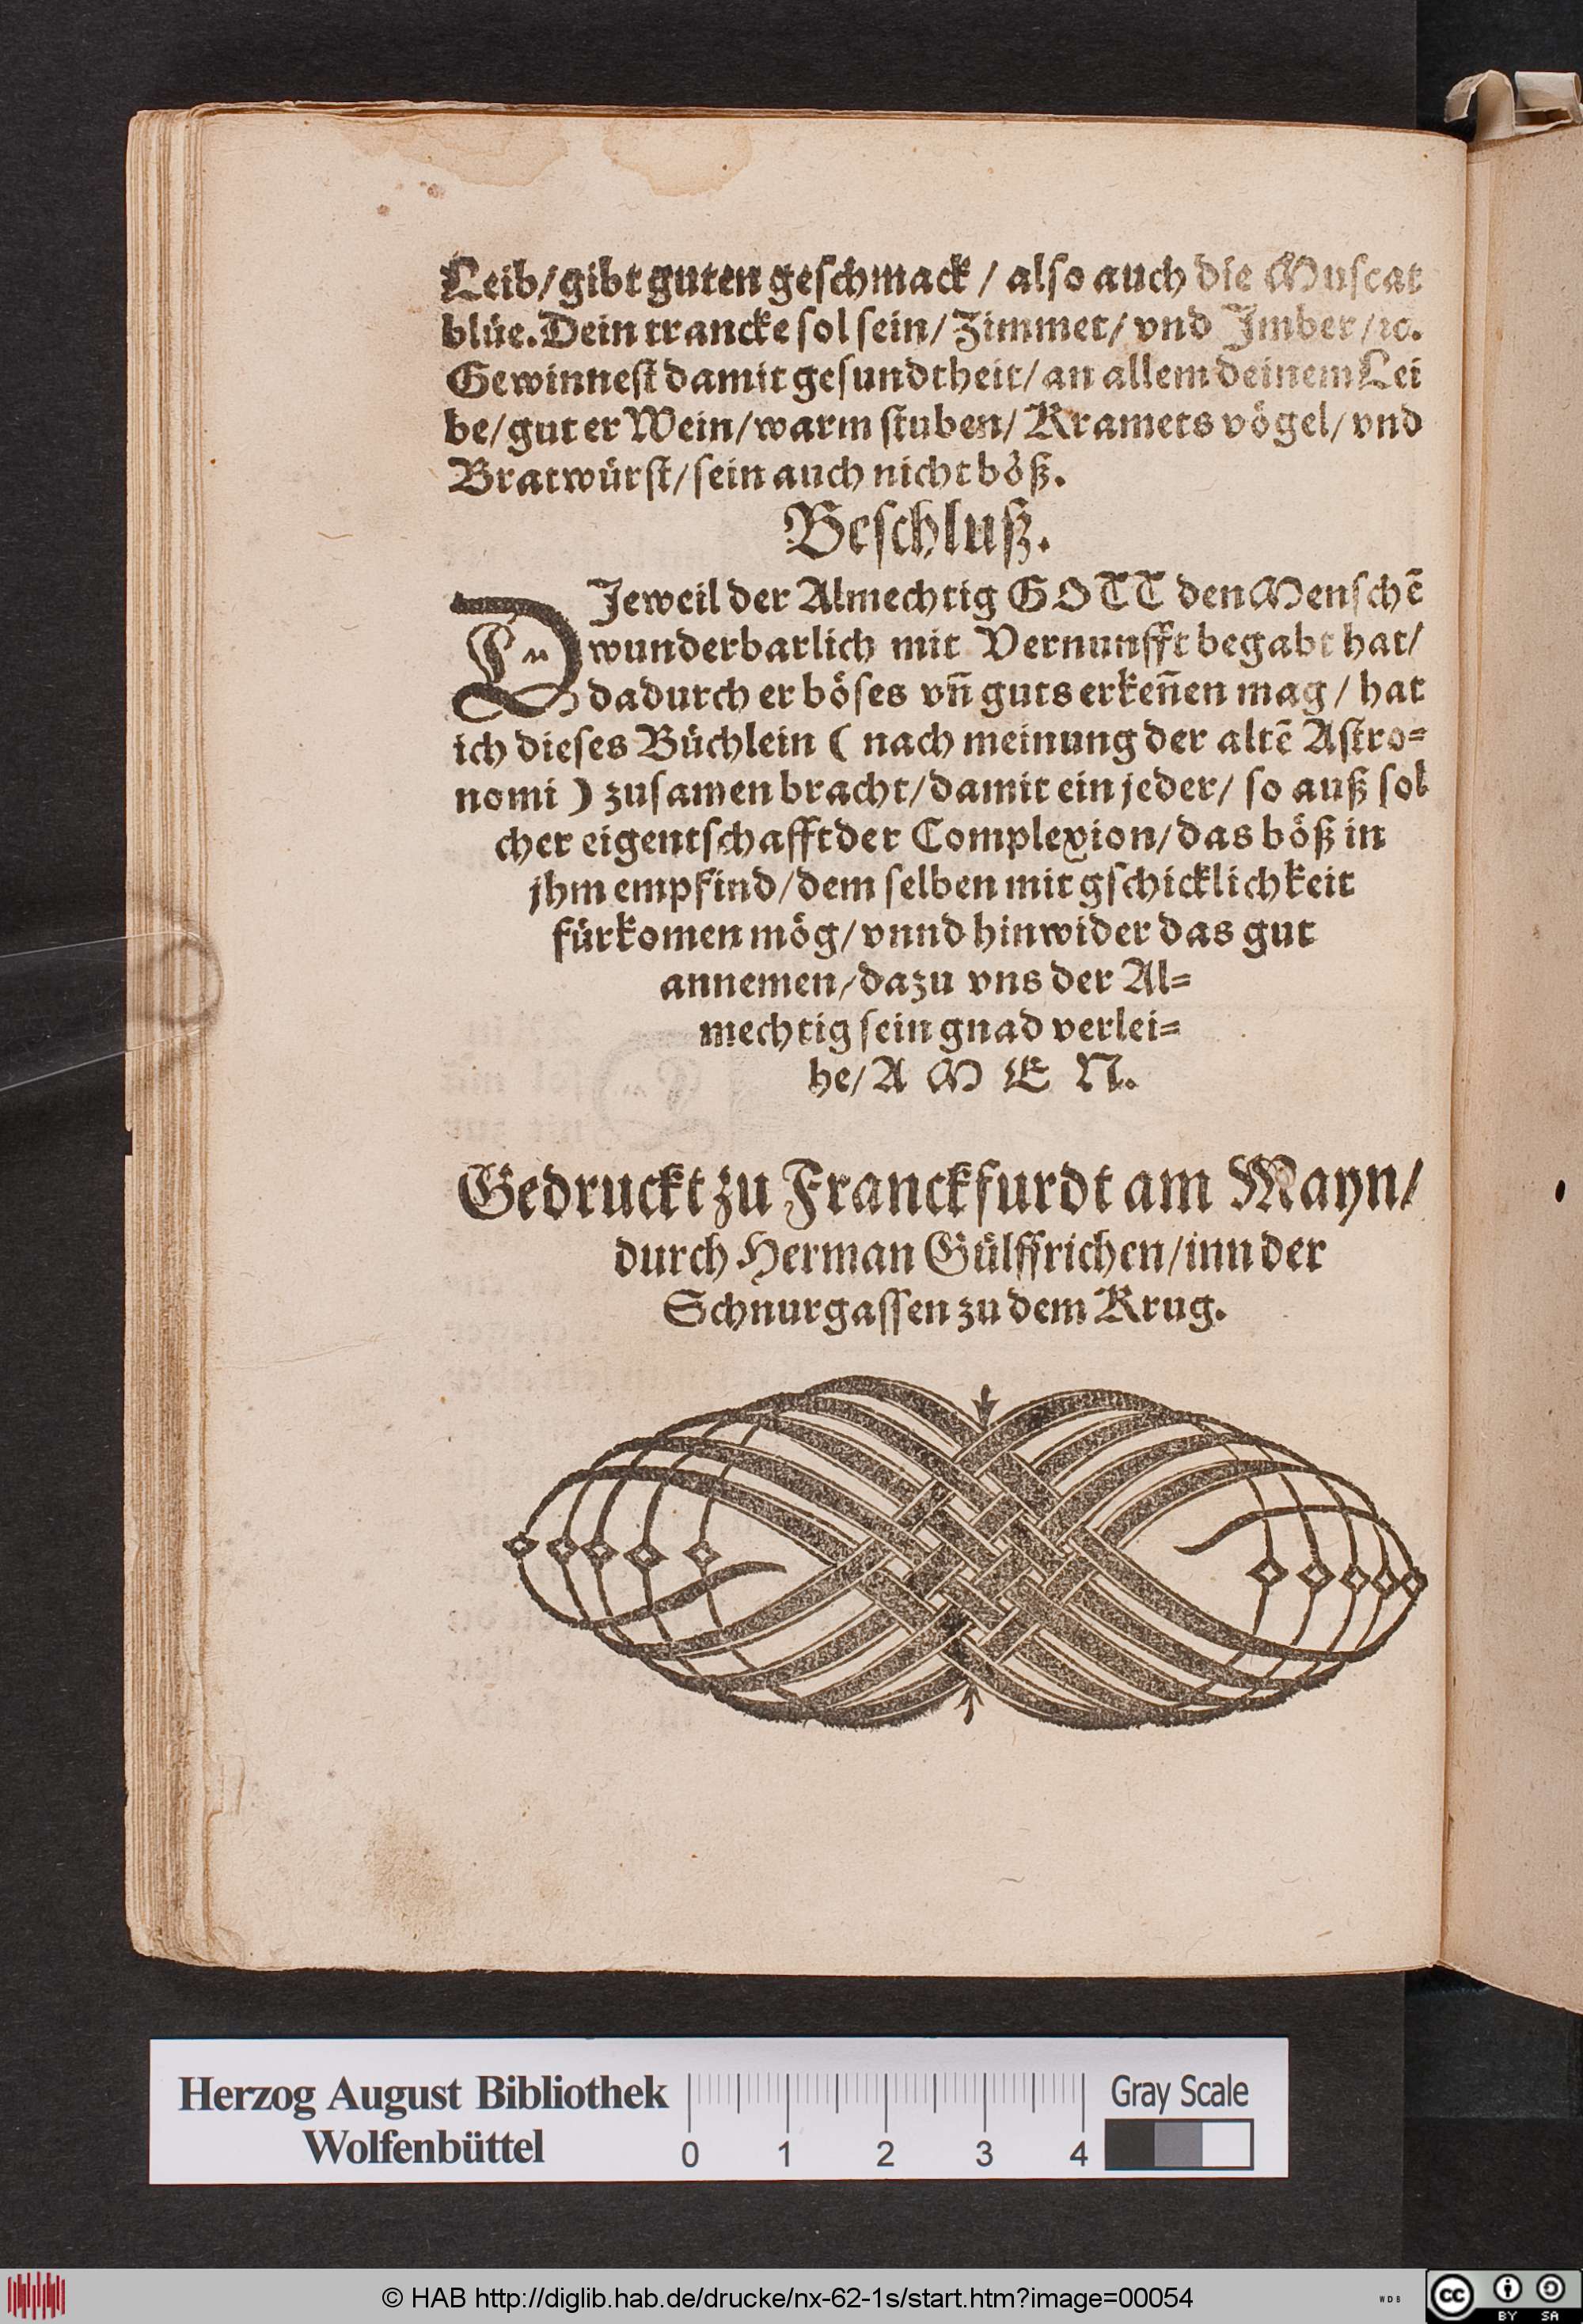 Leib/gibt guten geschmack / also auch die Muscat
blüe. Dein trancke sol sein/Zimmet/vnd Jmber/ꝛc.
Gewinnest damit gesundtheit/an allem deinem Lei
be/guter Wein/warm stuben/Kramets vögel/vnd
Bratwürst/sein auch nicht böß.
Beschluß.
DJeweil der Almechtig GOTT den Menschẽ
wunderbarlich mit Vernunfft begabt hat/
dadurch er böses vñ guts erkeñen mag / hat
ich dieses Büchlein ( nach meinung der altẽ Astro=
nomi ) zusamen bracht/damit ein jeder/ so auß sol
cher eigentschafft der Complexion/das böß in
jhm empfind/dem selben mit gschicklichkeit
fürkomen mög/vnnd hinwider das gut
annemen/dazu vns der Al=
mechtig sein gnad verlei=
he/A M E N.
Gedruckt zu Franckfurdt am Mayn/
durch Herman Gülffrichen/inn der
Schnurgassen zu dem Krug.
Herzog August Bibliothek
Wolfenbüttel
0 1 2 3 4
Gray Scale
© HAB http://diglib.hab.de/drucke/nx-62-1s/start.htm?image=00054
WDB
cc BY SA